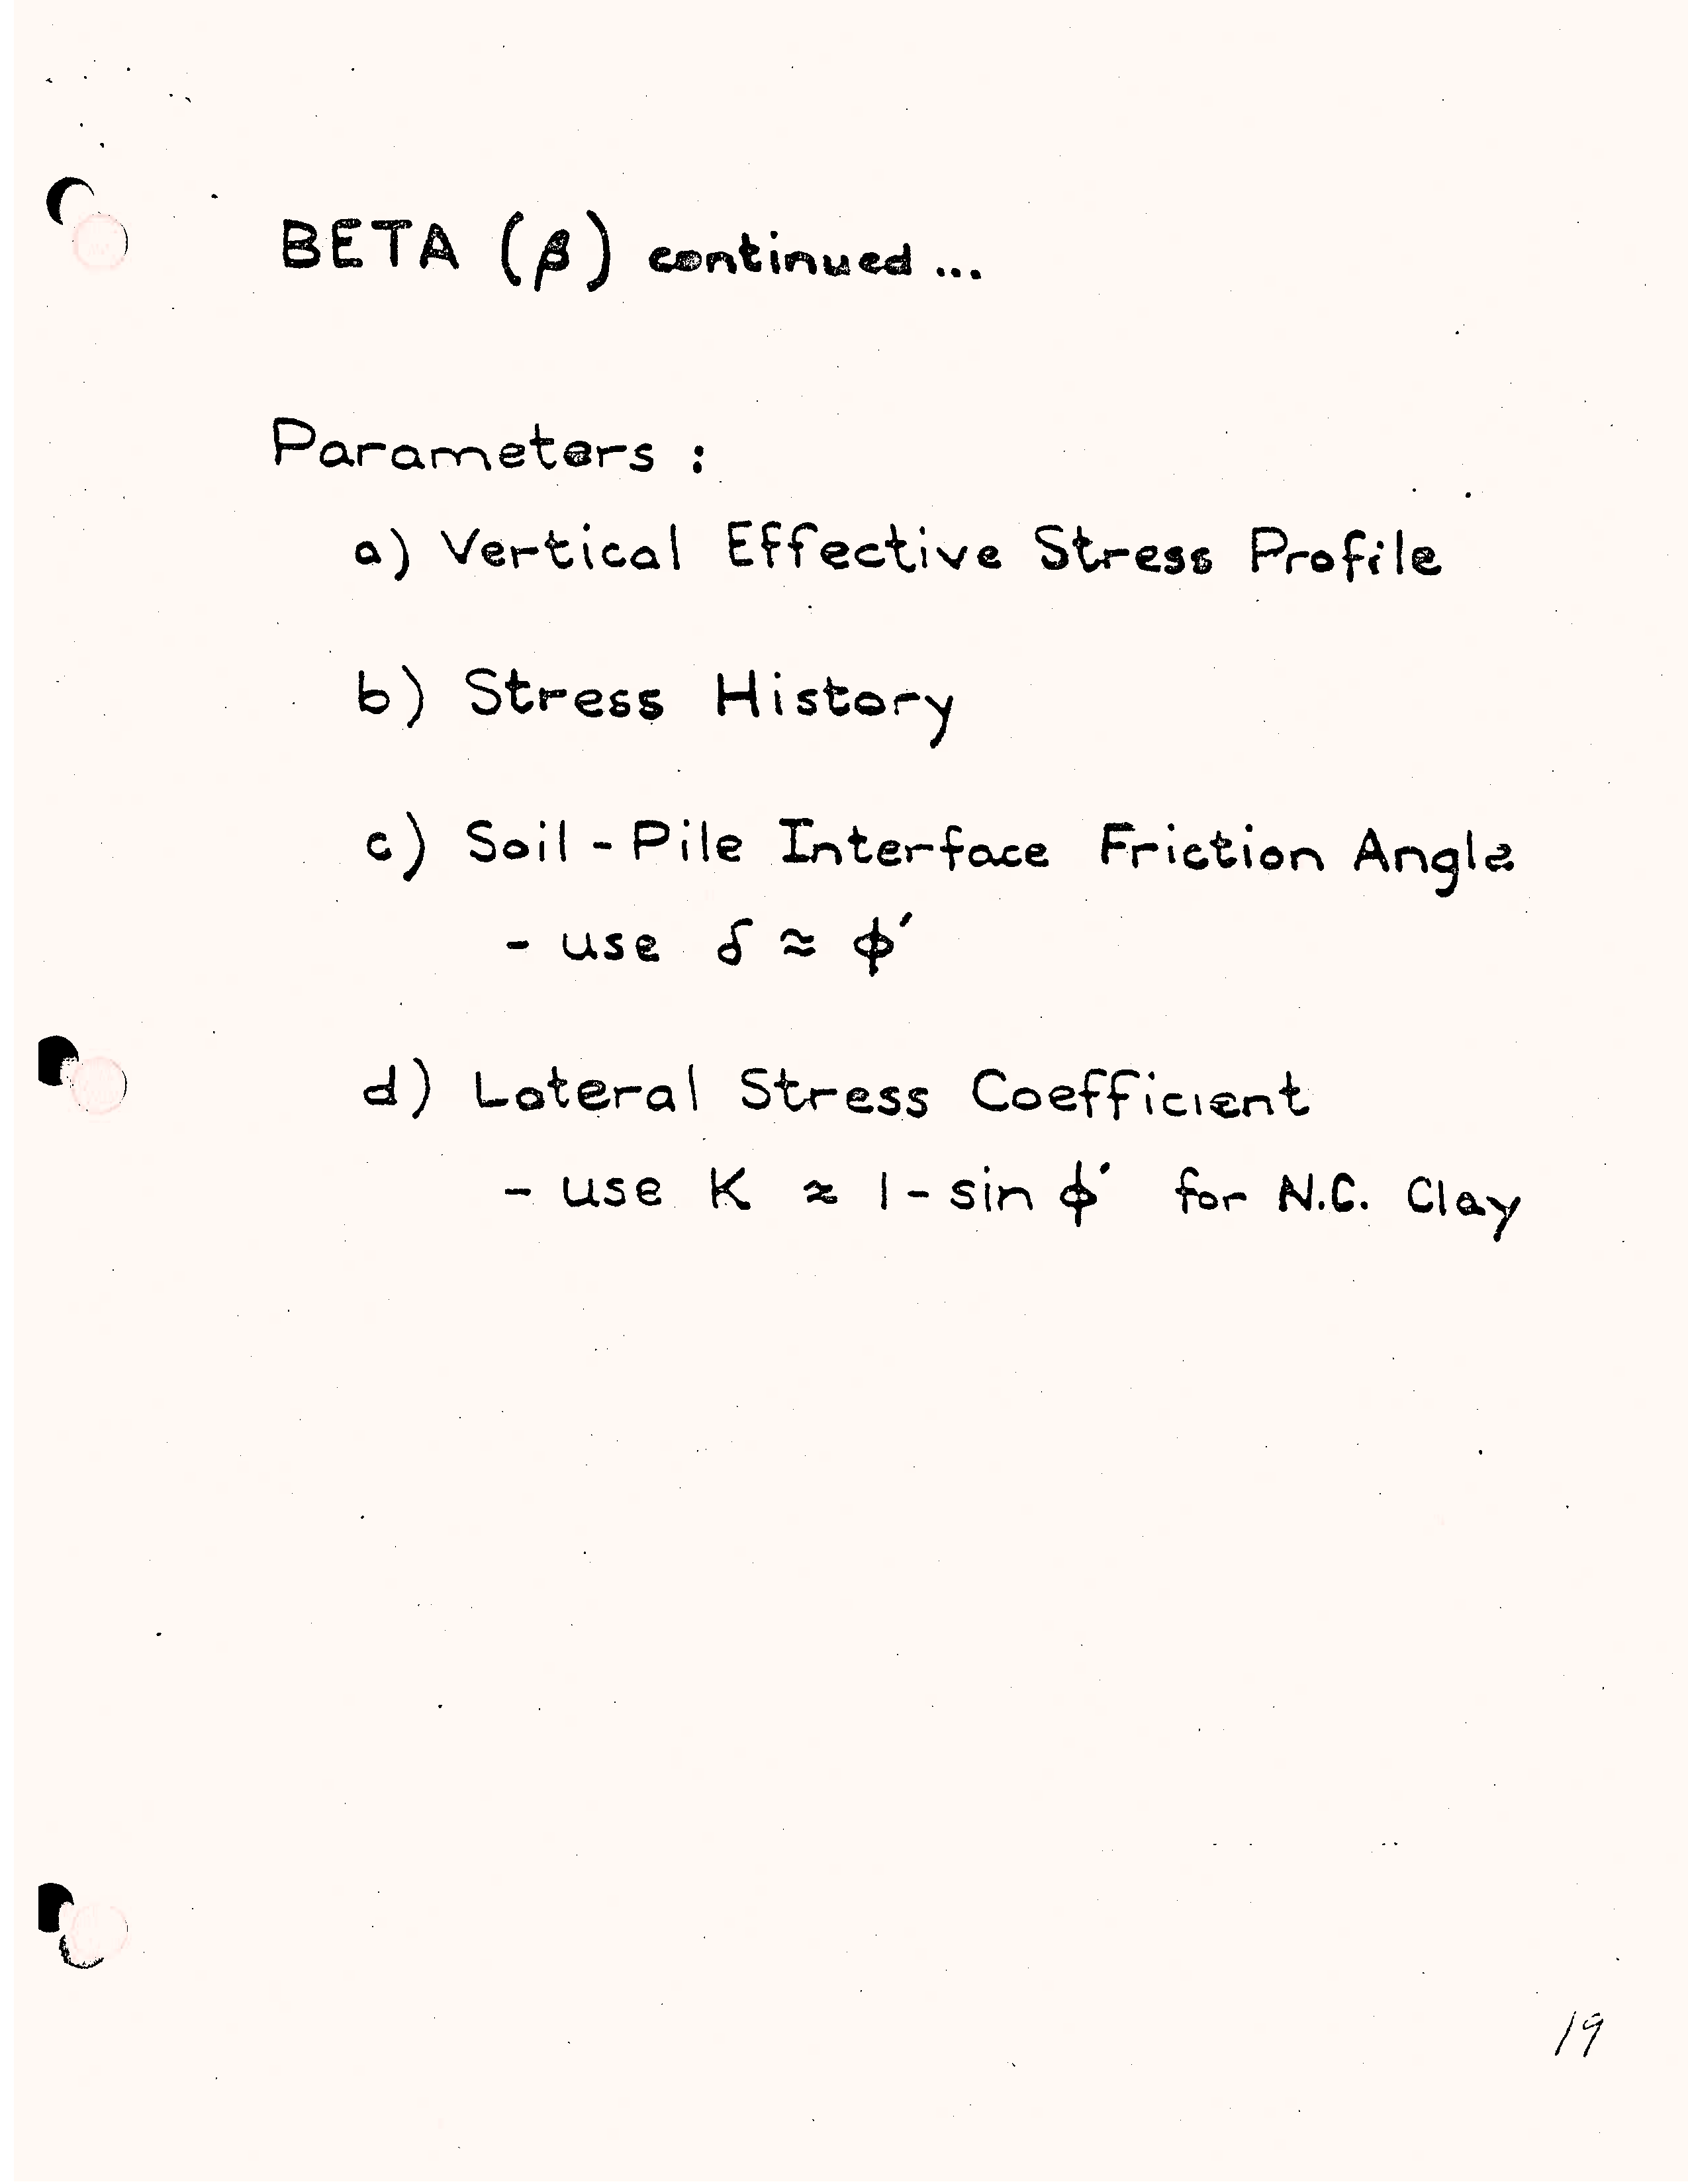 BETA (β) continued ...
Parameters :
a) Vertical Effective Stress Profile
b) Stress History
c) Soil - Pile Interface Friction Angle
- use δ ≈ ϕ′
d) Lateral Stress Coefficient
- use K ≈ 1 - sin ϕ′ for N.C. Clay
19